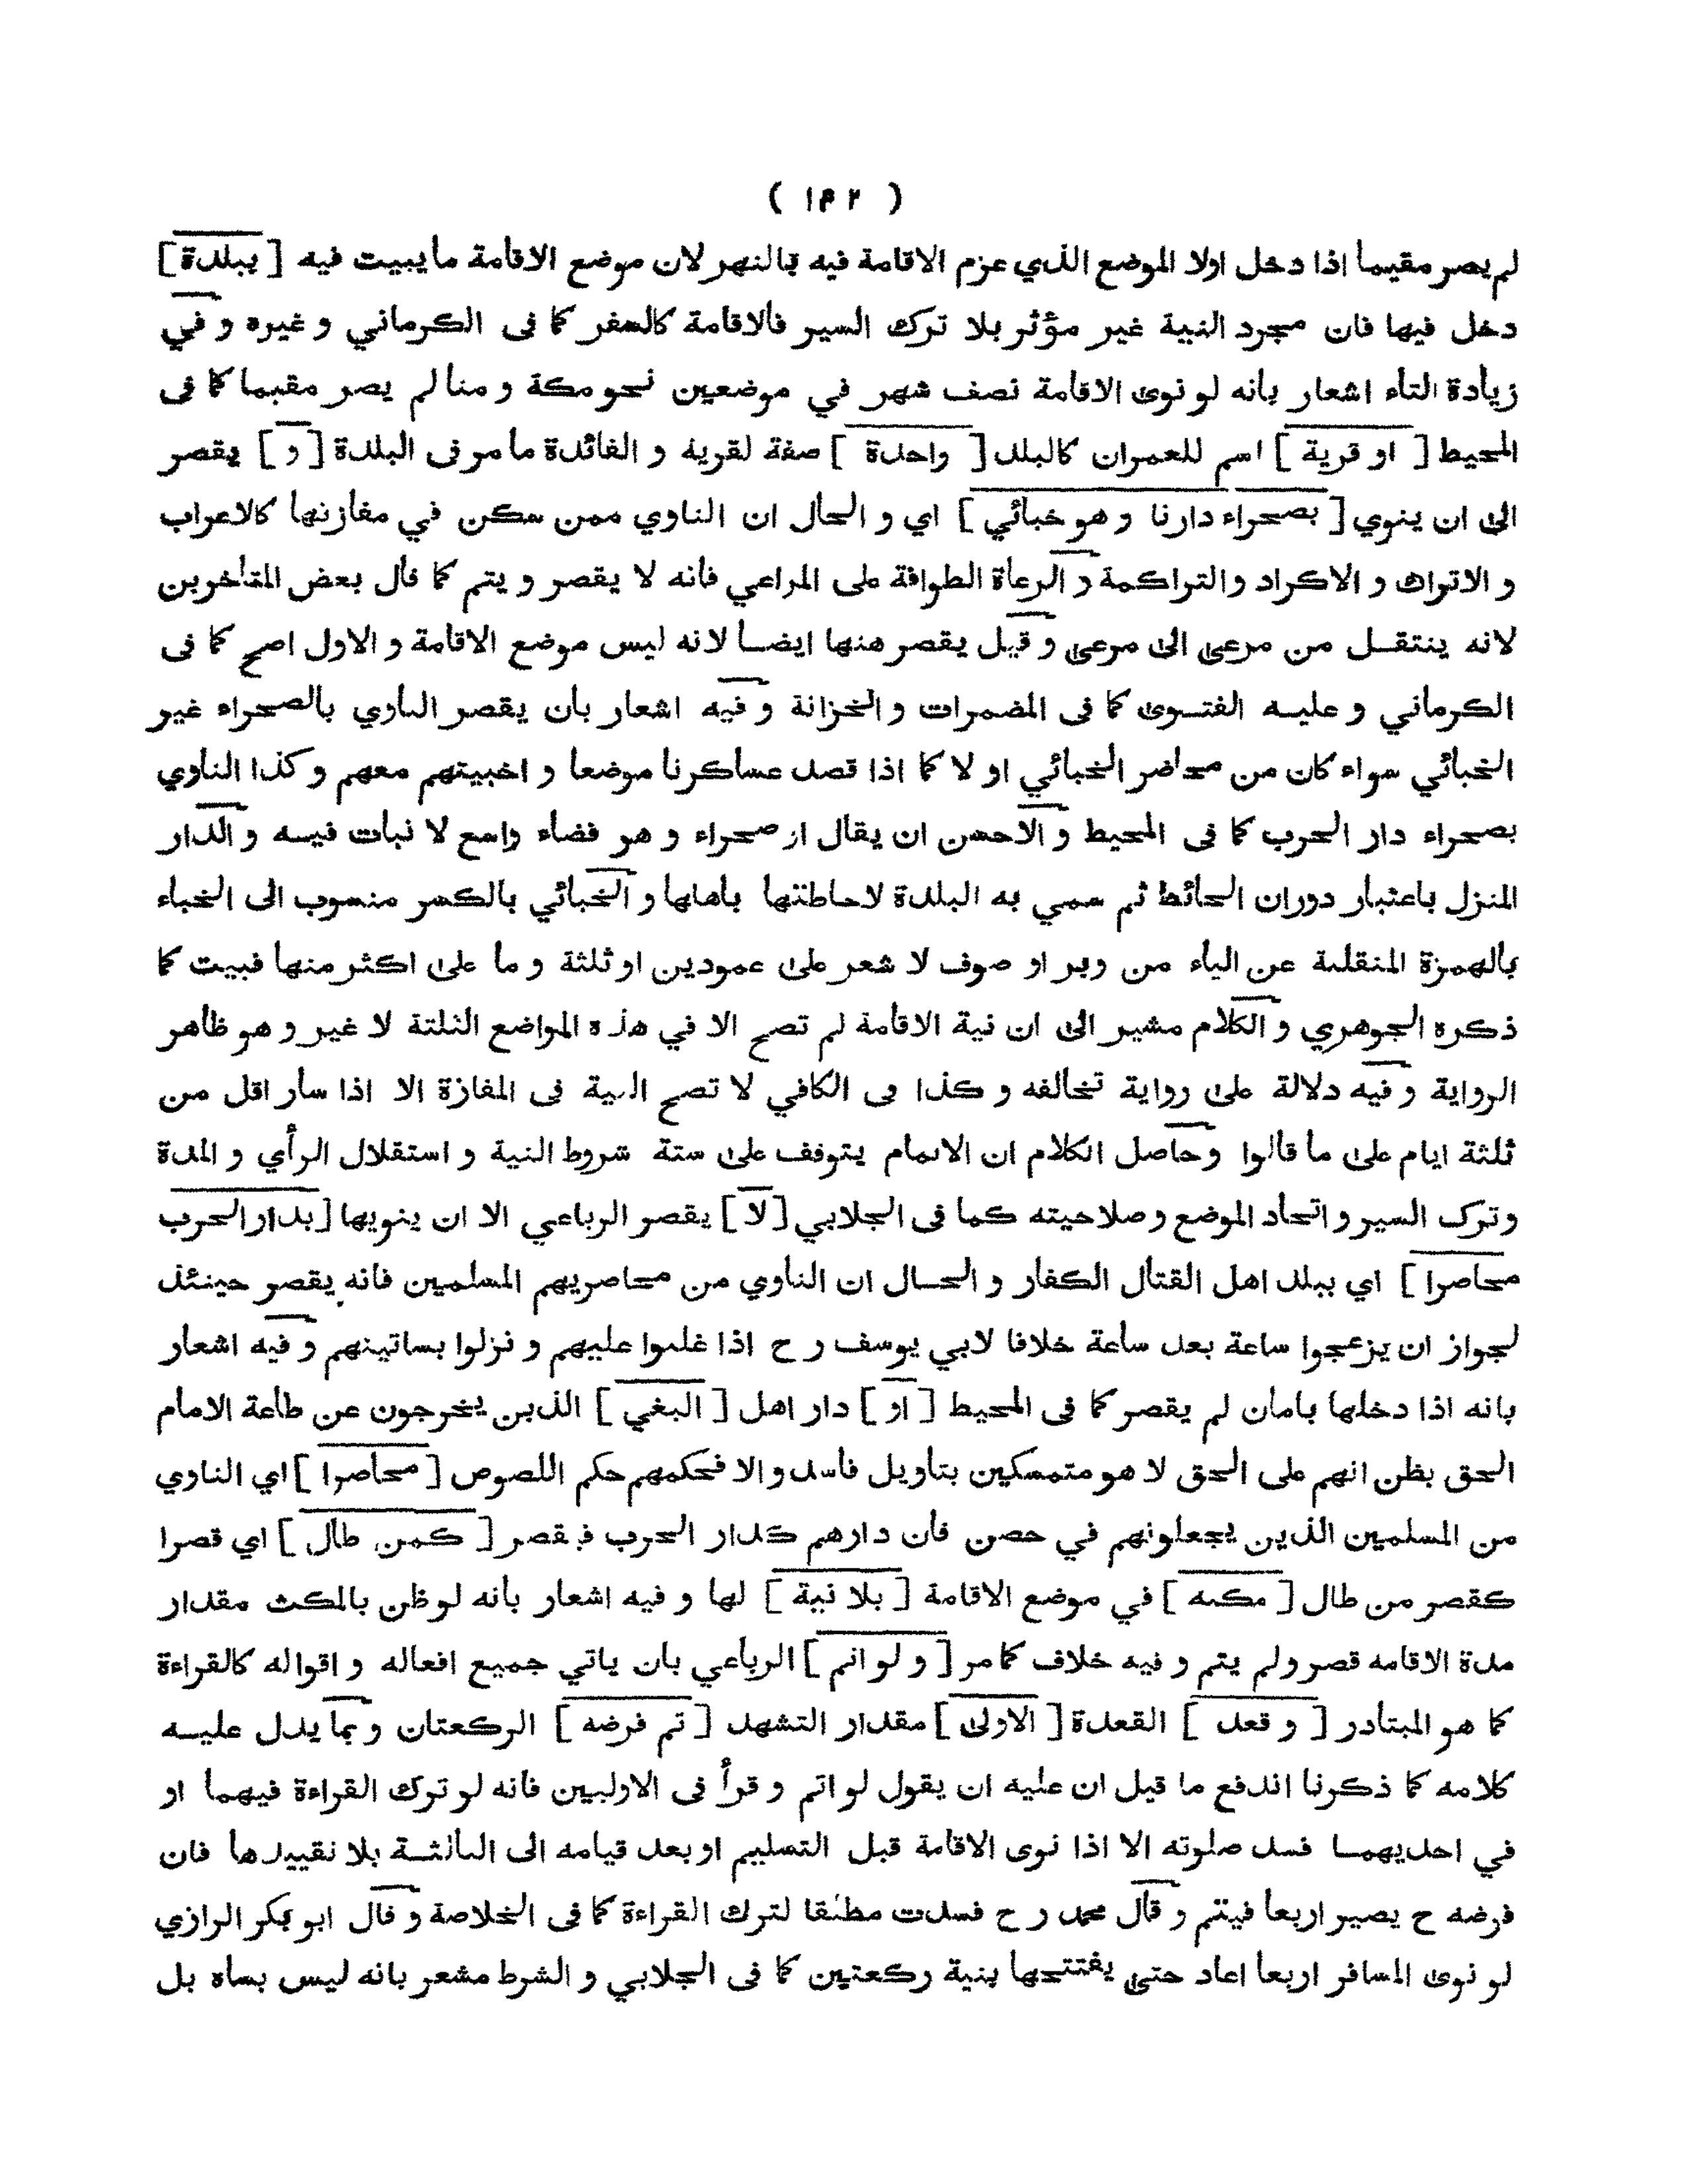 ( ١٤٢ )
لم يصر مقيما اذا دخل اولا الموضع الذي عزم الاقامة فيه بالنهر لان موضع الاقامة ما يبيت فيه [ ببلدة ]
دخل فيها فان مجرد النية غير مؤثر بلا ترك السير فالاقامة كالسفر كما فى الكرماني و غيره و في
زيادة التاء اشعار بانه لو نوى الاقامة نصف شهر في موضعين نحو مكة و منا لم يصر مقيما كما فى
المحيط [ او قرية ] اسم للعمران كالبلد [ واحدة ] صفة لقرية و الفائدة ما مر فى البلدة [ و ] يقصر
الى ان ينوي [ بصحراء دارنا و هو خبائي ] اي و الحال ان الناوي ممن سكن في مفازتها كالاعراب
و الاتراك و الاكراد و التراكمة و الرعاة الطوافة على المراعي فانه لا يقصر و يتم كما قال بعض المتاخرين
لانه ينتقل من مرعى الى مرعى و قيل يقصر هنها ايضا لانه ليس موضع الاقامة و الاول اصح كما فى
الكرماني و عليه الفتوى كما فى المضمرات و الخزانة و فيه اشعار بان يقصر الناوي بالصحراء غير
الخبائي سواء كان من محاضر الخبائي او لا كما اذا قصد عساكرنا موضعا و اخبيتهم معهم و كذا الناوي
بصحراء دار الحرب كما فى المحيط و الاحسن ان يقال از صحراء و هو فضاء واسع لا نبات فيه و الدار
المنزل باعتبار دوران الحائط ثم سمي به البلدة لاحاطتها باهلها و الخبائي بالكسر منسوب الى الخباء
بالهمزة المنقلبة عن الياء من وبر او صوف لا شعر على عمودين او ثلثة و ما على اكثر منها فبيت كما
ذكره الجوهري و الكلام مشير الى ان نية الاقامة لم تصح الا في هذه المواضع الثلثة لا غير و هو ظاهر
الرواية و فيه دلالة على رواية تخالفه و كذا فى الكافي لا تصح النية فى المفازة الا اذا سار اقل من
ثلثة ايام على ما قالوا و حاصل الكلام ان الاتمام يتوقف على ستة شروط النية و استقلال الرأي و المدة
و ترك السير و اتحاد الموضع و صلاحيته كما فى الجلابي [ لا ] يقصر الرباعي الا ان ينويها [ بدار الحرب
محاصرا ] اي ببلد اهل القتال الكفار و الحال ان الناوي من محاصريهم المسلمين فانه يقصر حينئذ
لجواز ان يزعجوا ساعة بعد ساعة خلافا لابي يوسف ر ح اذا غلبوا عليهم و نزلوا بساتينهم و فيه اشعار
بانه اذا دخلها بامان لم يقصر كما فى المحيط [ او ] دار اهل [ البغي ] الذين يخرجون عن طاعة الامام
الحق بظن انهم على الحق لا هو متمسكين بتاويل فاسد و الا فحكمهم حكم اللصوص [ محاصرا ] اي الناوي
من المسلمين الذين يجعلونهم في حصن فان دارهم كدار الحرب فيقصر [ كمن طال ] اي قصرا
كقصر من طال [ مكثه ] في موضع الاقامة [ بلا نية ] لها و فيه اشعار بانه لو ظن بالمكث مقدار
مدة الاقامه قصر و لم يتم و فيه خلاف كما مر [ و لو اتم ] الرباعي بان ياتي جميع افعاله و اقواله كالقراءة
كما هو المبتادر [ و قعد ] القعدة [ الاولى ] مقدار التشهد [ تم فرضه ] الركعتان و بما يدل عليه
كلامه كما ذكرنا اندفع ما قيل ان عليه ان يقول لو اتم و قرأ فى الاوليين فانه لو ترك القراءة فيهما او
في احديهما فسد صلوته الا اذا نوى الاقامة قبل التسليم او بعد قيامه الى الثالثة بلا تقييدها فان
فرضه ح يصير اربعا فيتم و قال محمد ر ح فسدت مطلقا لترك القراءة كما فى الخلاصة و قال ابو بكر الرازي
لو نوى المسافر اربعا اعاد حتى يفتتحها بنية ركعتين كما فى الجلابي و الشرط مشعر بانه ليس بساه بل